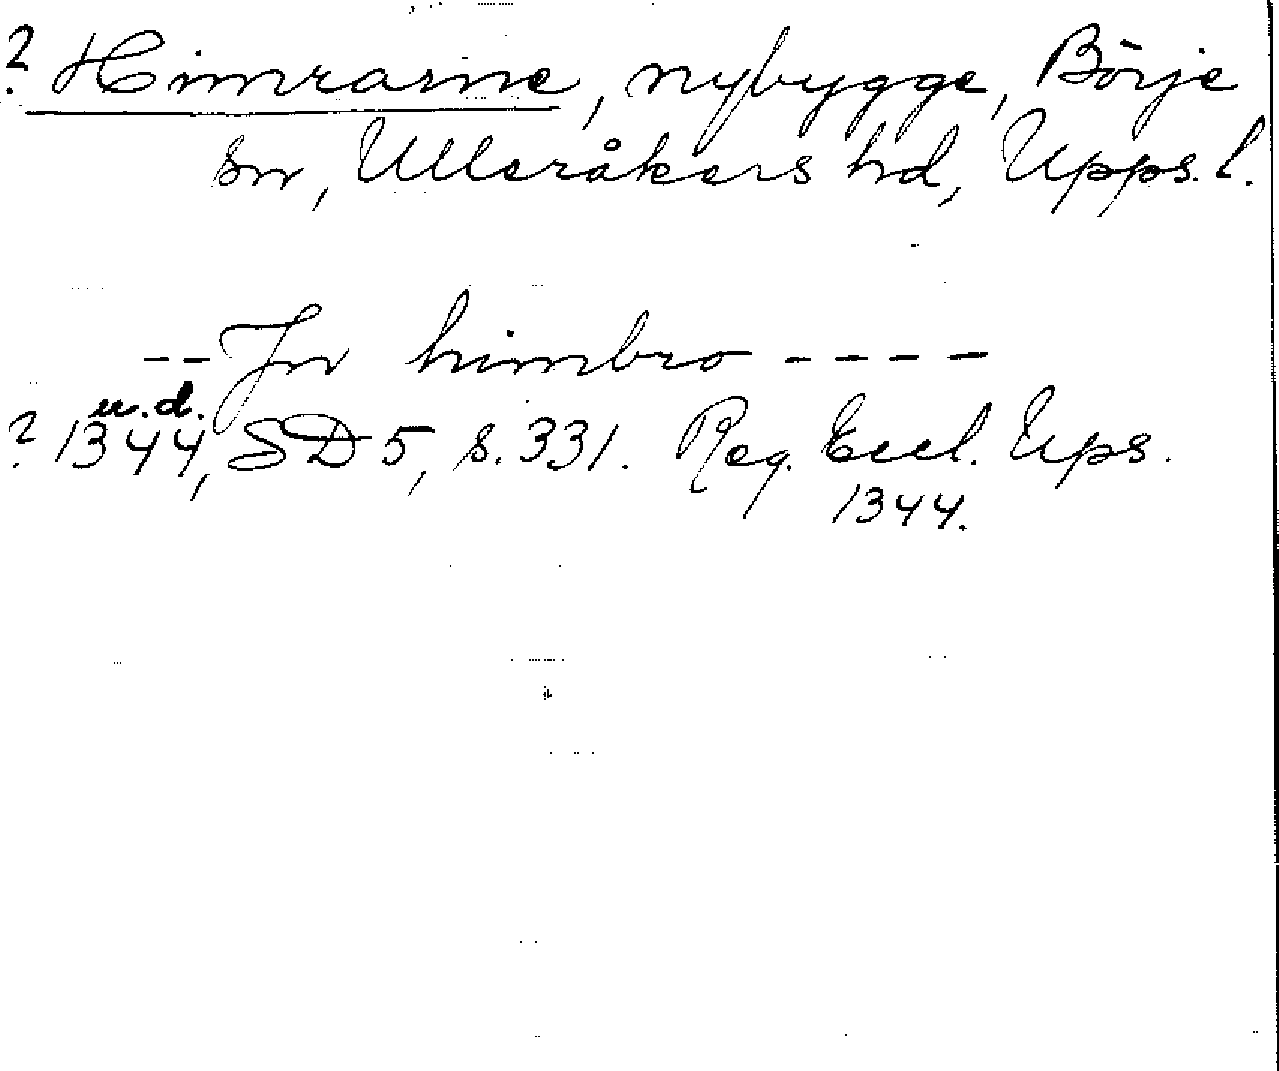 ? Himrarne, nybygge, Börje
sn, Ulleråkers hd, Upps. l.
-- Jn himbro ----
u.d.
? 1344, SD 5, s. 331. Reg. Eccl. Ups.
1344.